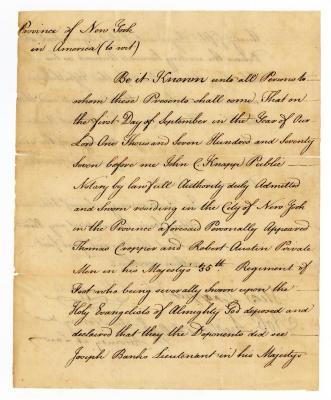 Province of New York
in America (to wit)
Be it Known unto all Persons to
whom these Presents shall come, That on
the first Day of September in the Year of Our
Lord One Thousand and Seven Hundred and Seventy
Seven before me John C Knapp Public
Notary by lawfull Authority duly Admitted
and Sworn residing in the City of New York
in the Province aforesaid Personally Appeared
Thomas Cropper and Robert Austin Private
Men in his Majestys 55th. Regiment of
Foot who being severally Sworn upon the
Holy Evangelists of Almighty God deposed and
declared that they the Deponents did see
Joseph Banks Lieutenant in his Majestys